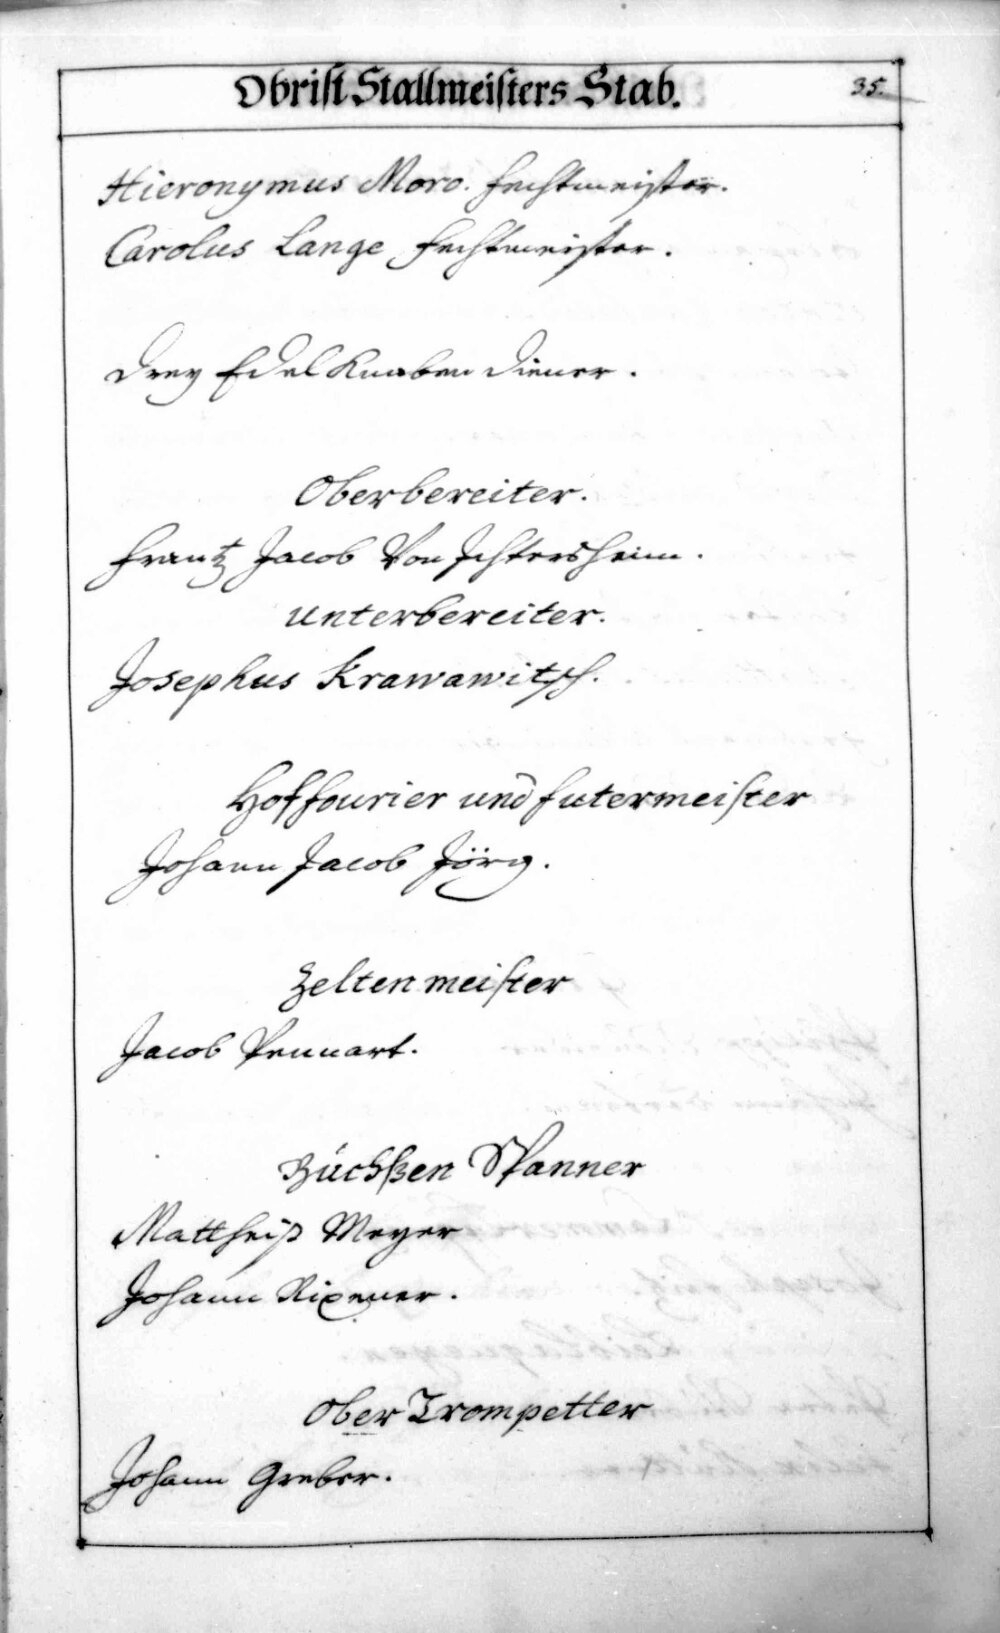 Obrist Stallmeisters Stab.
35.
Hieronymus Moro. Fechtmeister.
Carolus Lange Fechtmeister.
Drey EdelKnaben Diener.
Oberbereiter.
Frantz Jacob Von Ichtersheim.
Unterbereiter.
Josephus Krawawitsch.
Hoffourier und Futermeister
Johann Jacob Jörg.
Zeltenmeister
Jacob Pennart.
Büchssen Spanner
Mattheiß Meyer
Johann Rixener.
Ober Trompetter
Johann Greber.